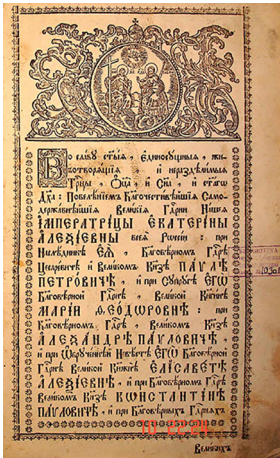 Во славу ст҃ыѧ, Единосущныѧ, жи-
вотворѧщїѧ и нераздѣлимыѧ
Трⷪ҇цы, Ѻц҃а, и Сн҃а, и ст҃агѡ
Дх҃а: Повелѣнїемъ Бл҃гочестивѣйшїѧ Само-
державнѣйшїѧ Великїѧ Гдⷭ҇рни Нашеѧ
ІМПЕРАТРІЦЫ ЕКАТЕРІНЫ
АЛЕѮІЕВНЫ всеѧ Рѡссїи: при
Наслѣдникѣ ЕѦ, Бл҃говѣрномъ Гдⷭ҇рѣ
Цесаревичѣ и Великомъ Кнѧзѣ ПАѴЛѢ
ПЕТРОВИЧѢ, и при Сꙋпрꙋгѣ ЕГѠ
Бл҃говѣрной Гдⷭ҇рнѣ, Великой Кнѧгинѣ
МАРІИ Ѳ̈ЕОДѠРОВНѢ: при
Бл҃говѣрномъ Гдⷭ҇рѣ, Великомъ Кнѧзѣ
АЛЕѮАНДРѢ ПАѴЛОВИЧѢ,
и при Ѡбрꙋченнѣй Невѣстѣ ЕГѠ Бл҃говѣрной
Гдⷭ҇рнѣ Великой Кнѧжнѣ ЕЛІСАВЕТѢ
АЛЕѮІЕВНѢ, и при Бл҃говѣрномъ Гдⷭ҇рѣ
Великомъ Кнѧзѣ КѠНСТАНТІНѢ
ПАѴЛОВИЧѢ, и при Бл҃говѣрныхъ Гдⷭ҇рнѧхъ
Великихъ